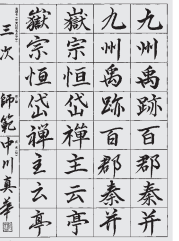 九州禹跡百郡秦并
九州禹跡百郡秦并
嶽宗恒岱禅主云亭
嶽宗恒岱禅主云亭
三次 師範 中川真華